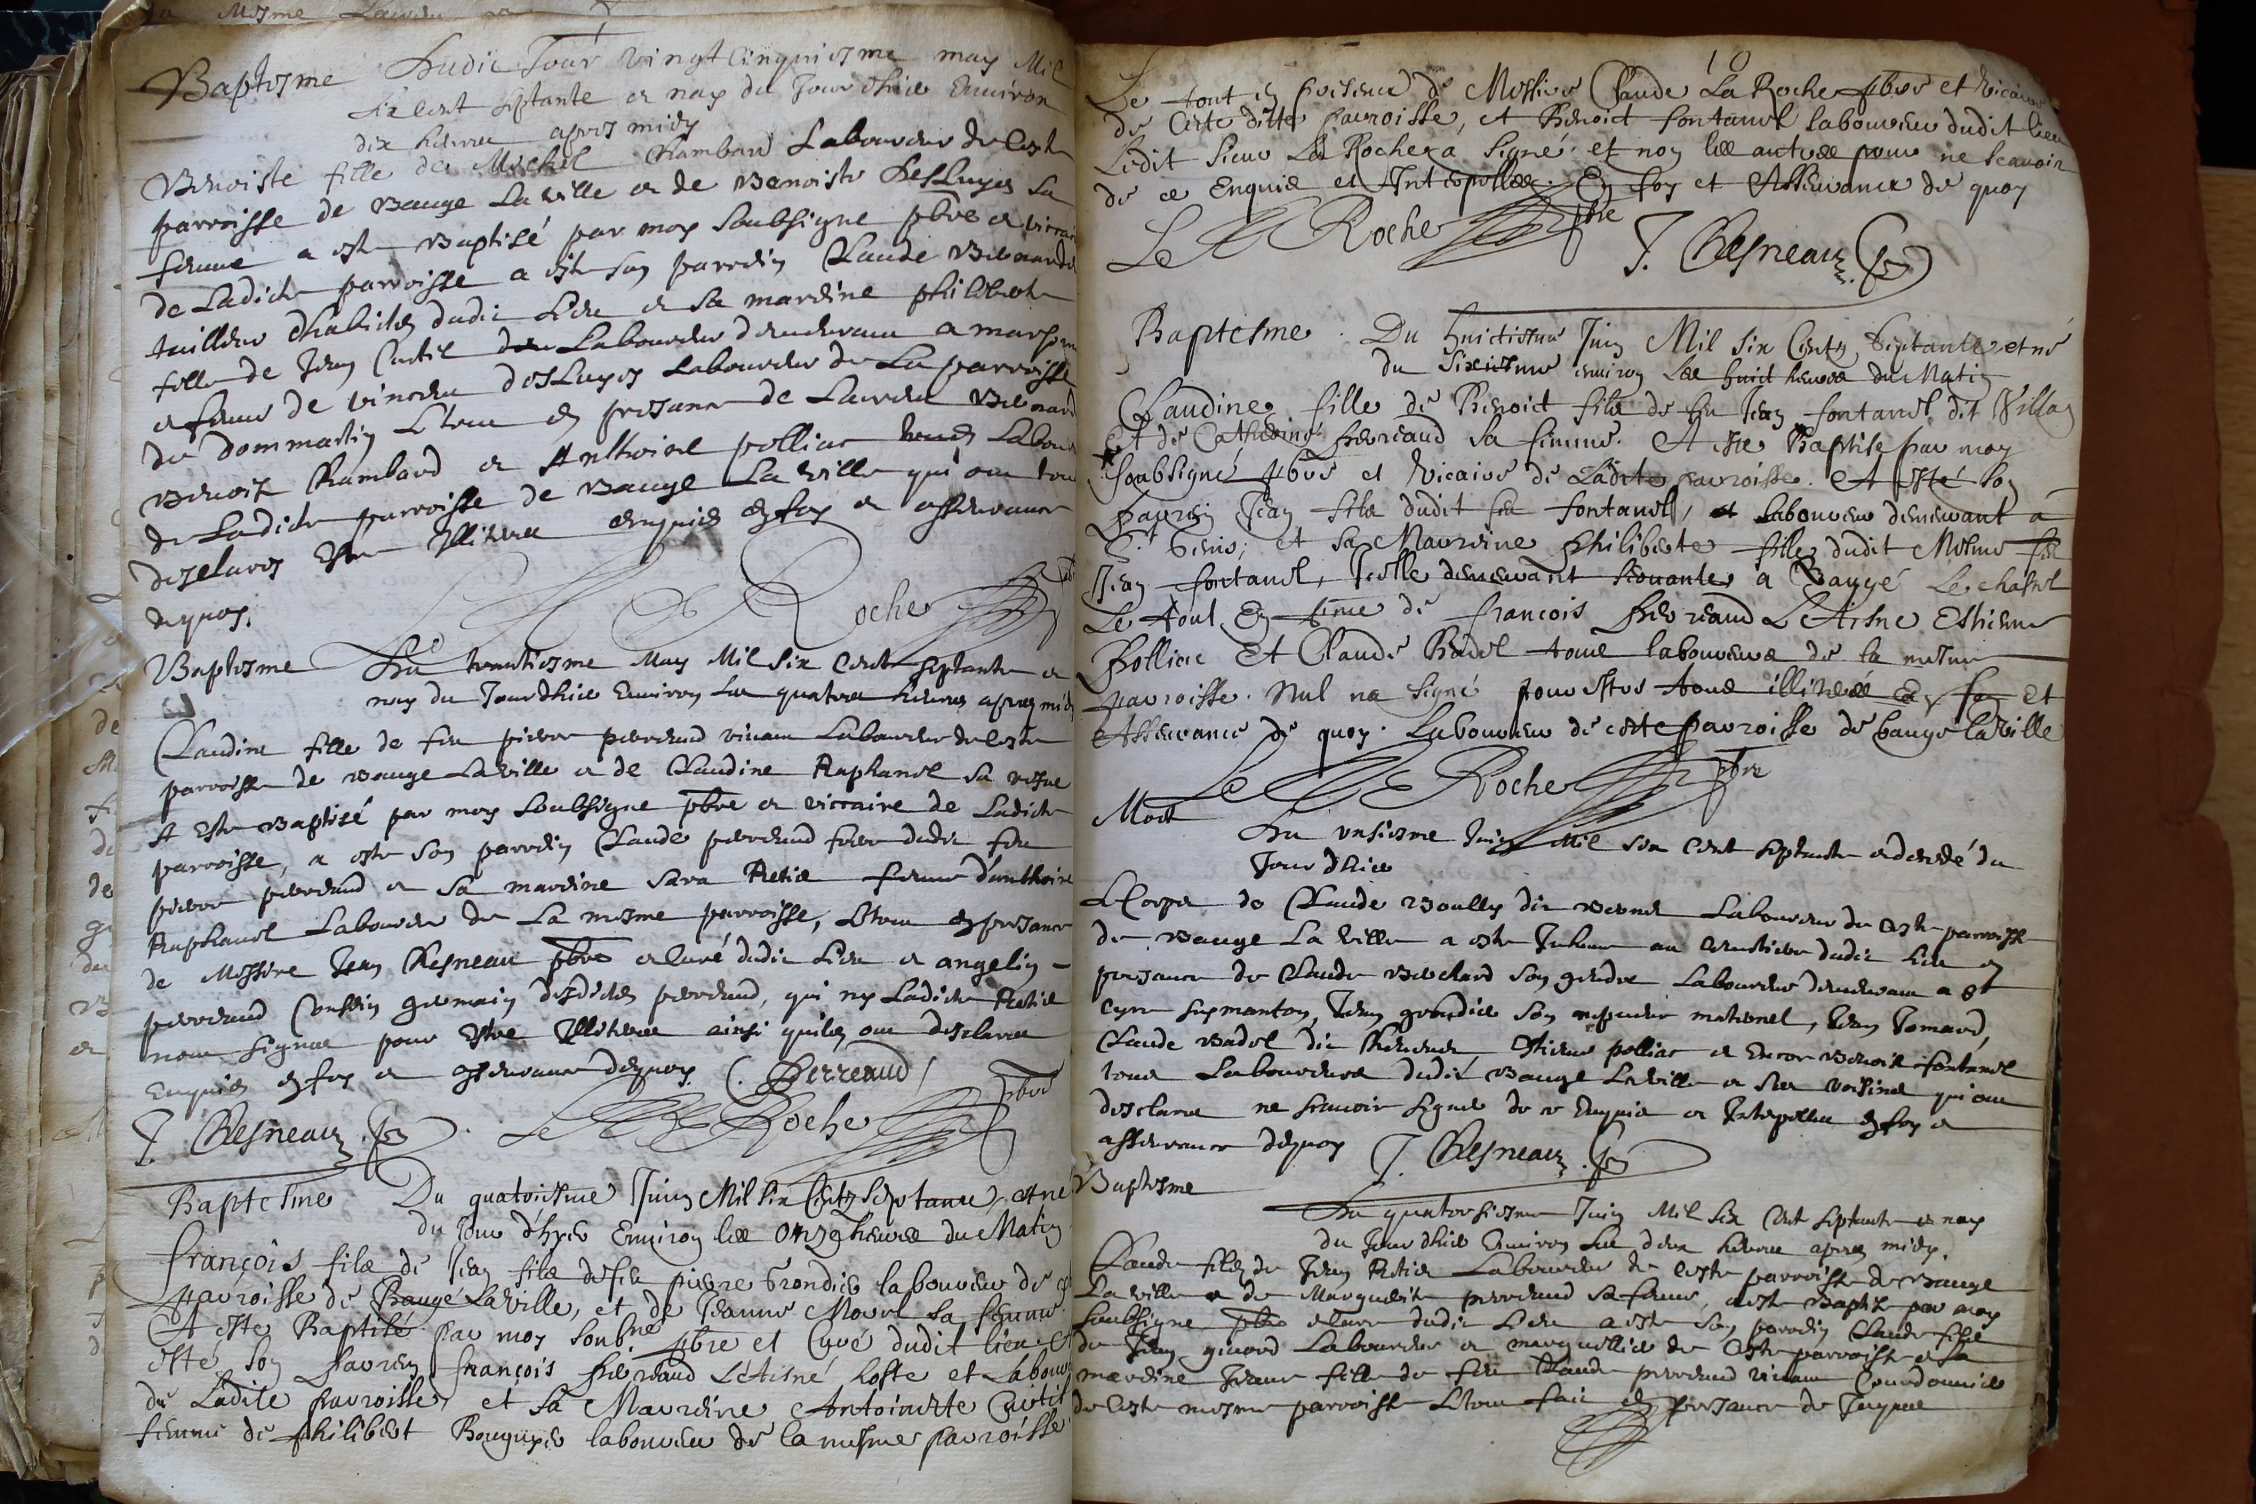 Baptesme Dudit Jour vingt cinquiesme may Mil
six cent septante et nay du Jourdhuy Environ
dix heures apres midy
Benoiste fille de Michel Chambard Laboureur de ceste
parroisse de Bauge La ville et de Benoiste Desluyes sa
femme a este Baptisé par moy soubsigne pbre et viccaire
de Ladicte parroisse a este son parrein Claude Bernard
tailleur dhabictes dudit Lieu et sa mareine philiberte
fille de Jean Curtil Laboureur demeurant a
et femme de vincen desluyes Laboureur de La parroisse
de dommartin Letout en presance de Laurens Bernard
Benoist Chambard et Anthoine polliac Labou
de Ladicte parroisse de Bauge La ville qui ont tous
desclares Estre Illiteres enquis en foy et asseurance
dequoy.
La Roche pbre
Baptesme Du trentiesme May Mil six cent septante et
nay du Jourdhuy Environ Les quatre heures apres midy
Claudine fille de feu pierre perreaud vivant Laboureur de ceste
parroisse de Bauge Laville et de Claudine Raphanel sa vesve
A este Baptisé par moy soubsigne pbre et viccaire de Ladicte
parroisse, a este son parrein Claude perreaud frere dudit feu
pierre perreaud et sa mareine sara Retis femme d'anthoine
Raphanel Laboureur de La mesme parroisse, Letout en presance
de Messire Jean Chesneau pbre et curé dudit Lieu et angelin
perreaud Cousein germain desdictes perreaud, qui ny Ladicte Retis
nont signes pour Estre Illiteres ainsi quils ont desclares
Enquis en foy et asseurance dequoy. Perreaud
J. Chesneau. La Roche pbre
Baptesme Du quatoriesme Juin Mil six Cents Septante, et né
du Jour d'hyer Environ les onze heures du Matin
François fils de Jean fils de feu pierre Grondier laboureur de
parroisse de Baugé Laville, et de Jeanne Morel sa femme.
A este Baptisé par moy soubne pbre et Curé dudit lieu et
esté son Parrein françois Perreaud L'Aisné hoste et Labour
de Ladite parroisse, et sa Marreine Antoinette Curtil
femme de philibert Bouquier laboureur de la mesme parroisse
10
Le tout en presence de Messire Claude La Roche pbre et Vicaire
de Cette ditte parroisse, et Benoict fontanel laboureur dudit lieu
Ledit sieur La Roche a signé et non les autres pour ne scavoir
de ce Enquis et Interpelles. En foy et Asseurance de quoy
La Roche pbre
J. Chesneau.
Baptesme. Du huictiesme Juin Mil six Cents Septante, et né
du sixiesme environ Les huict heures du Matin
Claudine fille de Benoict fils de feu Jean fontanel dit Villar
Et de Catherine Perreaud sa femme. A esté Baptise par moy
soubsigné pbre et Vicaire de Ladite parroisse. Et A esté son
parrein Jean fils dudit feu fontanel, et laboureur demeurant a
St Genis; et sa Marreine Philiberte fille dudit Mesme feu
Jean fontanel, Icelle demeurant servante a Baugé Le chastel
Le tout En pnce de françois Perreaud L'Aisne Estienne
Polliac Et Claude Badel tous laboureurs de la mesme
parroisse. Nul na signé pour estre tous illiteres En foy Et
Asseurance de quoy. Laboureur de cette parroisse de bauge laville
La Roche pbre
Mort
Du unsiesme Juin Mil six cent septante et decedé du
Jour dhier
Le Corps de Claude Boully dit Bernet Laboureur de Ceste parroisse
de Bauge La ville a este Inhume au Cemetiere dudit Lieu en
presance de Claude Brochard son gendre Laboureur demeurant a St
Cyre sus manton, Jean grondier son nepveu maternel, Jean Tomard,
Claude Badel dit, Estienne polliac et Encor Benoist fontanel
tous Laboureurs dudit Bauge Laville et ses voisins qui ont
desclares ne scavoir signer de ce Enquis et Interpelles en foy et
asseurance dequoy J. Chesneau.
Baptesme
Du quatorsiesme Juin Mil six Cent septante et nay
du Jourdhuy Environ Les deux heures apres midy.
Claude fils de Jean Retis Laboureur de ceste parroisse de Bauge
La ville et de Marguerite perreaud sa femme, a este Baptise par moy
soubsigne pbre et curé dudit Lieu a este son parrein Claude fils
de Jean girard Laboureur et marguellier de Ceste parroisse et sa
mareine Jeanne fille de feu Claude perreaud vivant Courdonnier
de Ceste mesme parroisse Letout fait en presance de Jaques